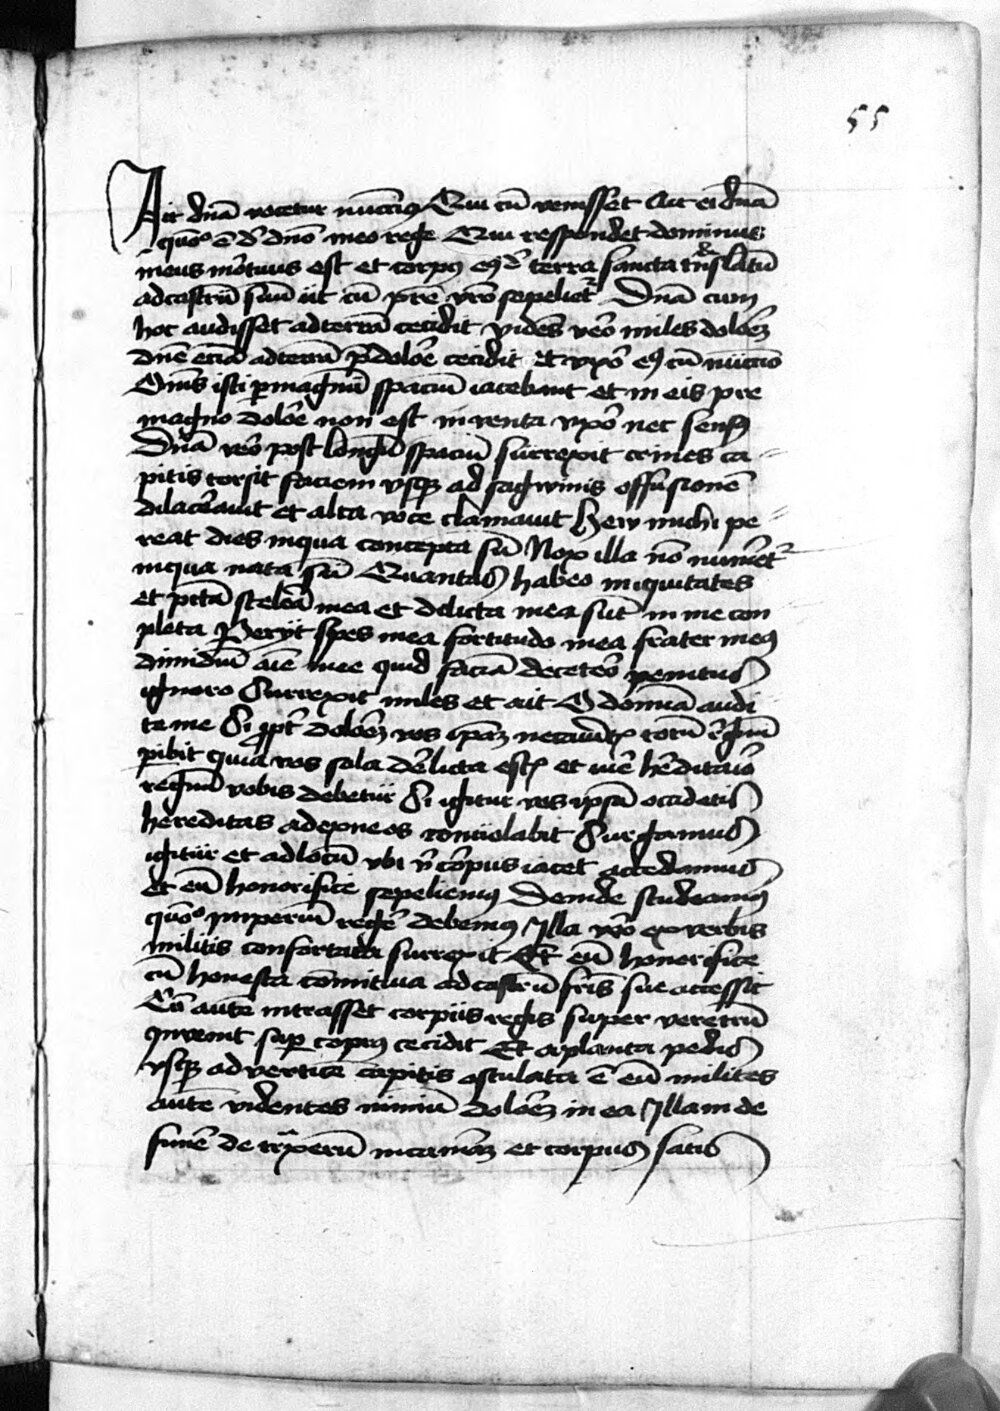 55
Ait dnā vocetur nuccius Qui cū venisset Ait ei dnā
quō ē d dnō meo rege Qui respondet dominus
meus mortuus est et corpus eius d terra sancta trāslatū
ad castrū suū ut cū pre vrō sepeliatr Dnā cum
hoc audisset ad terrā cecidit videns vero miles dolorē
dnē eciā ad terrā p dolore cecidit et vxor eius cū nuccio
Omēs isti p magnū spaciū iacebant et in eis pre
magno dolore non est inventa vox nec sensus
Dnā vero post longū spaciū surrexit crines ca
pitis torsit faciem vsque ad sagwinis effusionē
dilaceravit et alta voce clamavit Hew michi pe
reat dies in qua concepta sū Nox illa nō numeretr
in qua nata sū Quantas habeo iniquitates
et pctā scelera mea et delicta mea sūt in me con
pleta Periit spes mea fortitudo mea frater meus
dimidiū aīe mee quid faciā decetero penitus
ignoro Surrexit miles et ait O domina audi
te me Si ppt dolorē vos necaveritis totū regnū
pibit quia vos sola derelicta estis et iure hereditario
regnū vobis debetur Si igitur vos ipsā occidetis
hereditas ad extraneos Surgamus
igitur et ad locū vbi corpus iacet accedamus
et eū honorifice sepeliemus Deinde studeamus
quō imperiū regere debemus Illa vero ex verbis
militis confortata surrexit Et eū honorifice
cū honesta comitiva ad castrū fris sui accessit
Cū autē intrasset corpus regis super veretrū
invenit sup corpus cecidit Et a planta pedis
vsque ad verticē capitis osculata ē eū milites
autē videntes nimiū dolorē in ea Illam de
funere de traxerū in camerā et corpus satis